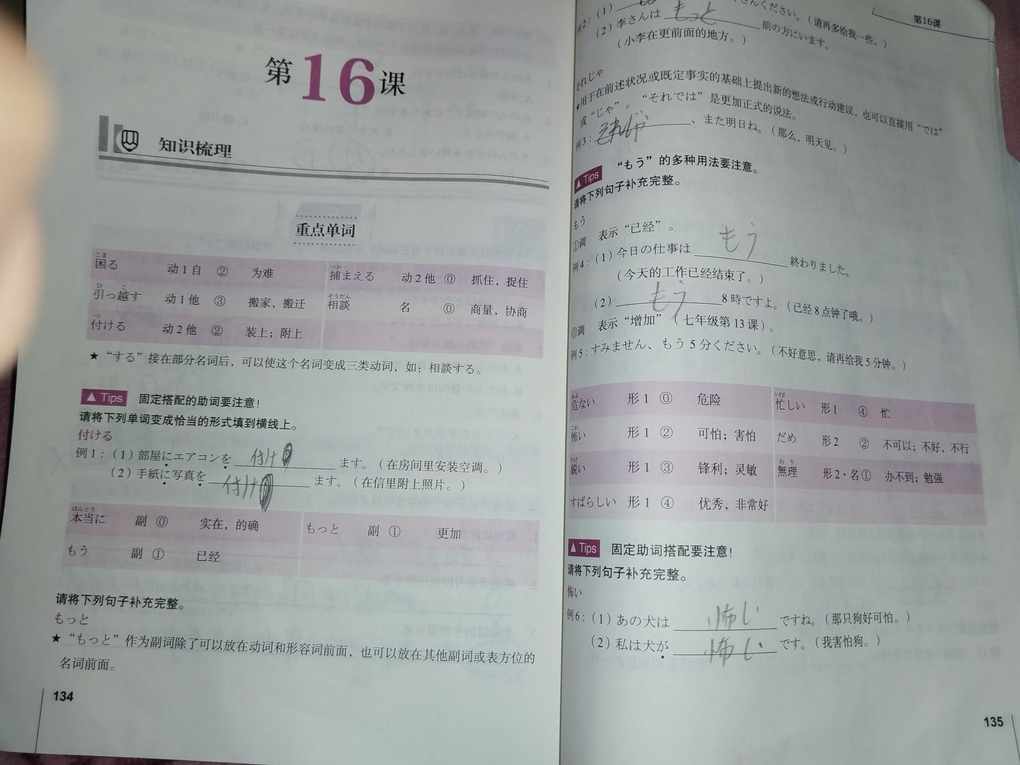 第16课
知识梳理
重点单词
こま
困る 动1自 ② 为难
つか
捕まえる 动2他 ⓪ 抓住，捉住
ひ こ
引っ越す 动1他 ③ 搬家，搬迁
そうだん
相談 名 ⓪ 商量，协商
付ける 动2他 ② 装上；附上
★“する”接在部分名词后，可以使这个名词变成三类动词，如：相談する。
▲Tips 固定搭配的助词要注意！
请将下列单词变成恰当的形式填到横线上。
付ける
例1：（1）部屋にエアコンを 付け ます。（在房间里安装空调。）
（2）手紙に写真を 付け ます。（在信里附上照片。）
ほんとう
本当に 副 ⓪ 实在，的确
もっと 副 ① 更加
もう 副 ① 已经
请将下列句子补充完整。
もっと
★“もっと”作为副词除了可以放在动词和形容词前面，也可以放在其他副词或表方位的
名词前面。
134
第16课
2：（1） さんください。（请再多给我一些。）
（2）李さんは もっと 前の方にいます。
（小李在更前面的地方。）
それじゃ
用于在前述状况或既定事实的基础上提出新的想法或行动建议，也可以直接用“では”
或“じゃ”。“それでは”是更加正式的说法。
例3： 、また明日ね。（那么，明天见。）
▲Tips “もう”的多种用法要注意。
请将下列句子补充完整。
もう
①调 表示“已经”。
例4：（1）今日の仕事は もう 終わりました。
（今天的工作已经结束了。）
（2） もう 8時ですよ。（已经8点钟了哦。）
调 表示“增加”（七年级第13课）。
例5：すみません、もう5分ください。（不好意思，请再给我5分钟。）
危ない 形1 ⓪ 危险
いそが
忙しい 形1 ④ 忙
怖い 形1 ② 可怕；害怕
だめ 形2 ② 不可以；不好，不行
鋭い 形1 ③ 锋利；灵敏
むり
無理 形2·名① 办不到；勉强
すばらしい 形1 ④ 优秀，非常好
▲Tips 固定助词搭配要注意！
请将下列句子补充完整。
怖い
例6：（1）あの犬は 怖い ですね。（那只狗好可怕。）
（2）私は犬が 怖い です。（我害怕狗。）
135